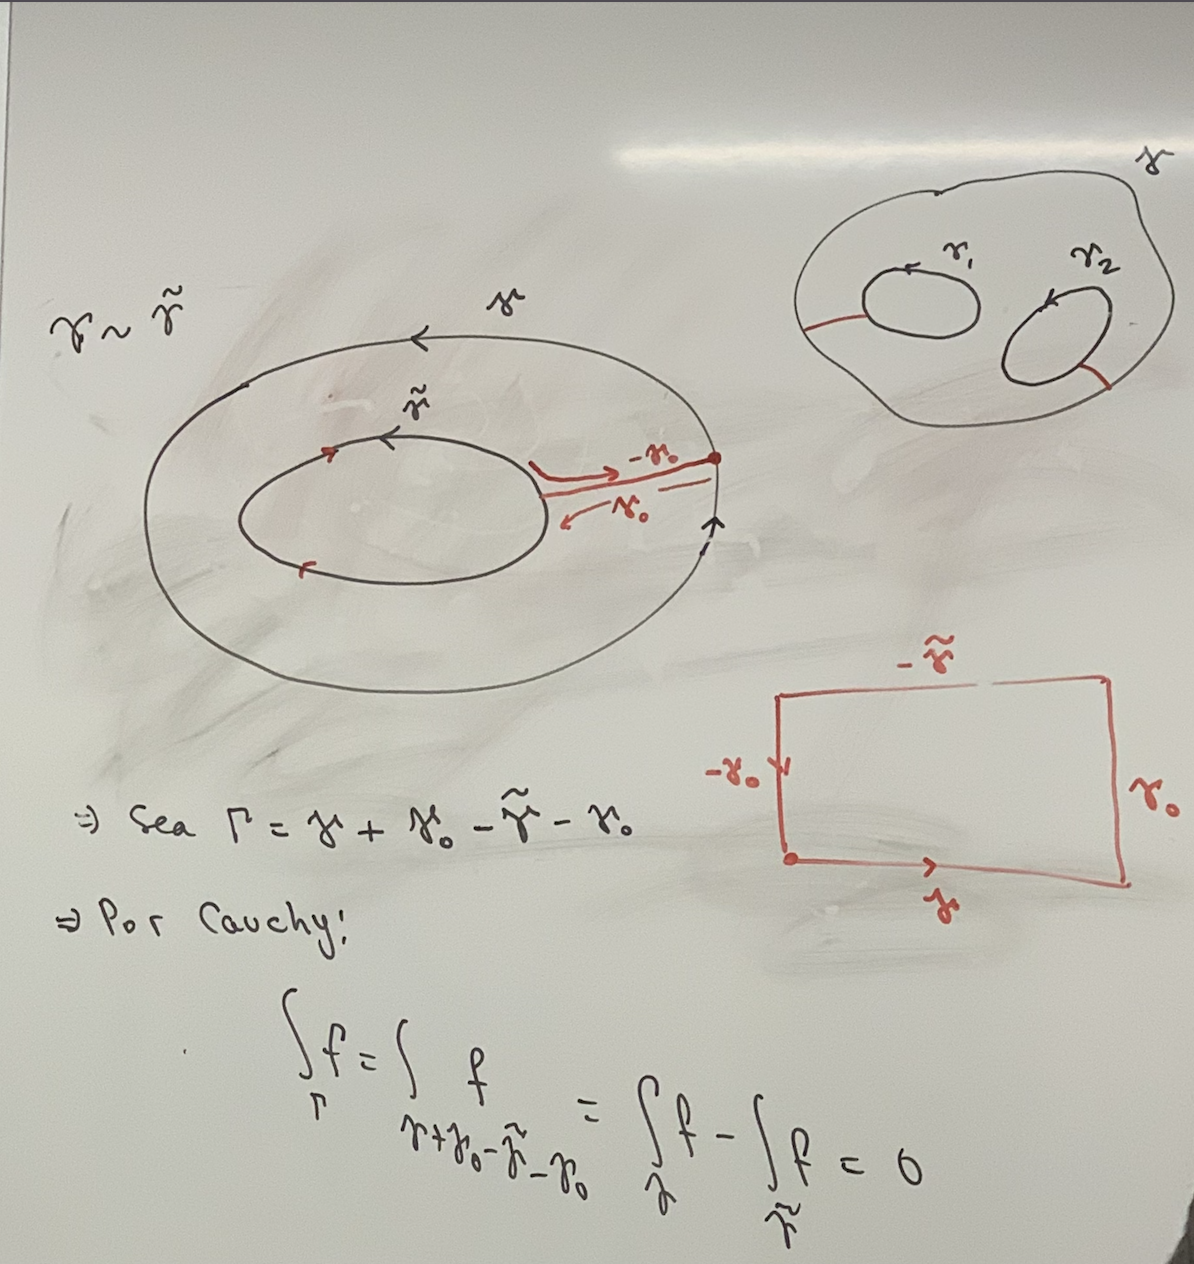 γ
γ₁ γ₂
γ ~ γ̃
γ
γ̃
-γ₀
γ₀
-γ̃
-γ₀ γ₀
γ
⇒ Sea Γ = γ + γ₀ - γ̃ - γ₀
⇒ Por Cauchy:
∫_Γ f = ∫_{γ+γ₀-γ̃-γ₀} f = ∫_γ f - ∫_γ̃ f = 0